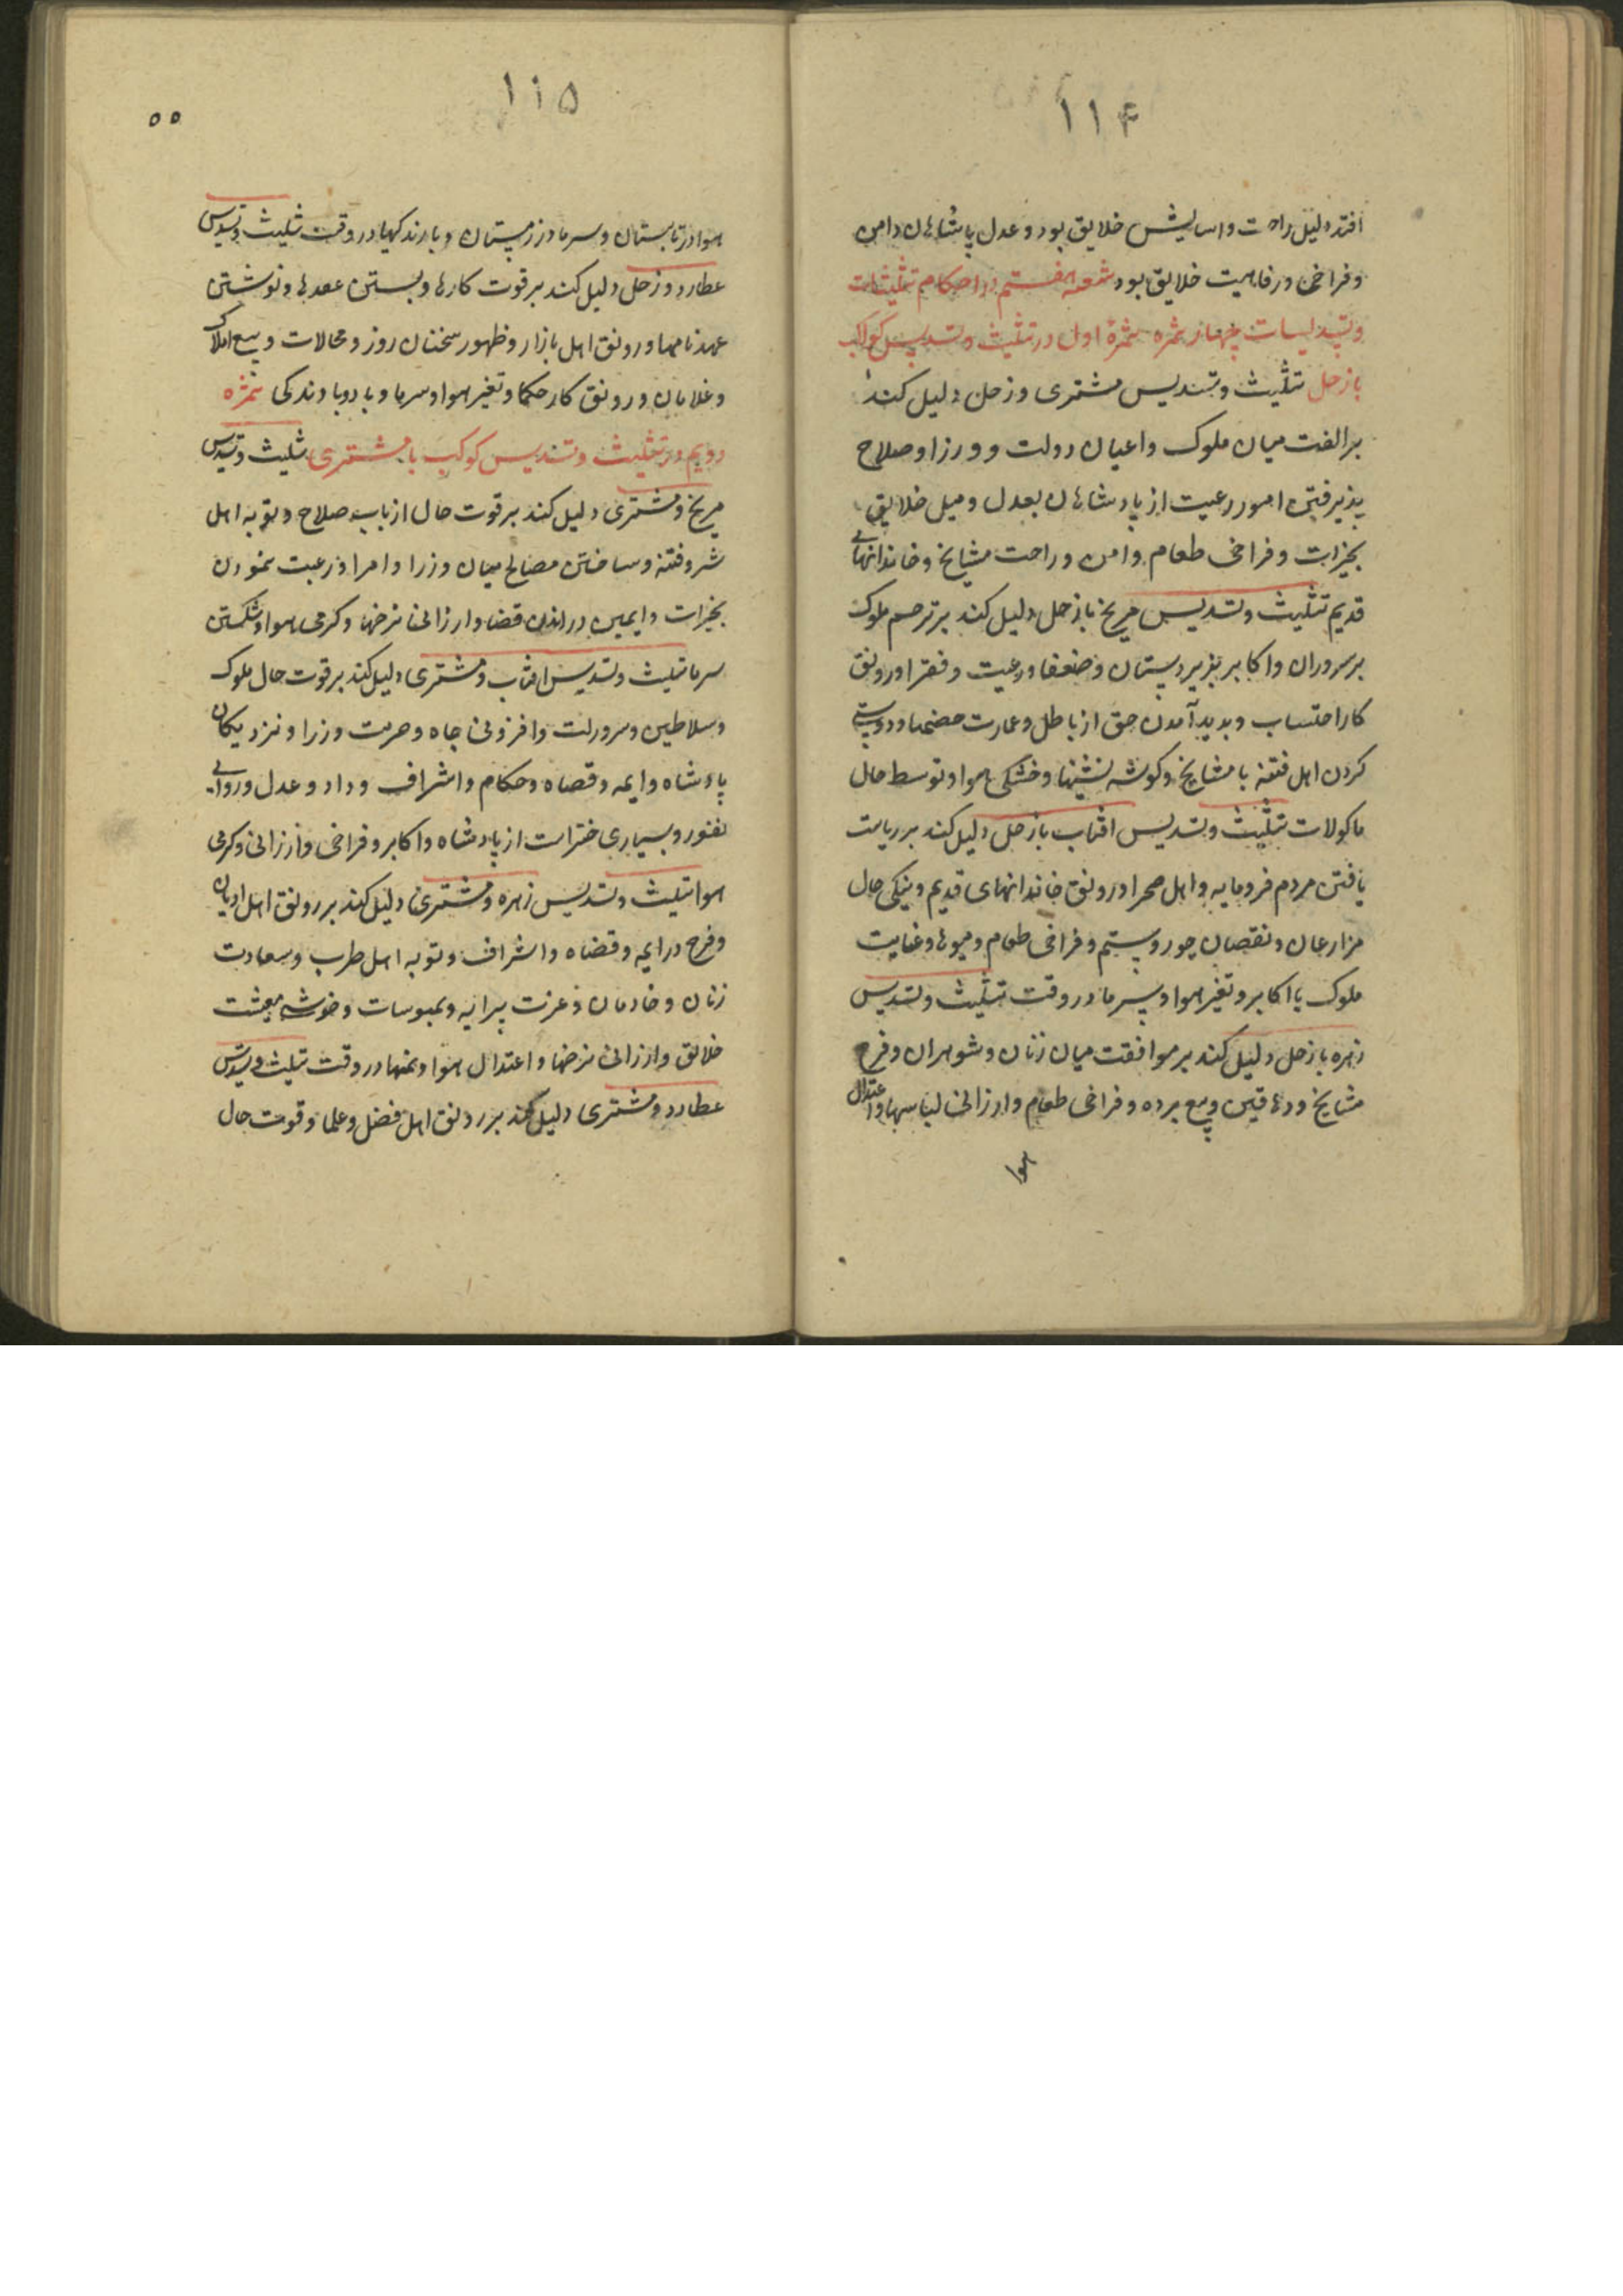 ۱۱۴
افتد دلیل راحت و اسایش خلایق بود و عدل پادشاهان و امن
و فراخی و رفاهیت خلایق بود شعبه هفتم در احکام تثلیثات
و تسدیسات چهار ثمره ثمرهٔ اول در تثلیث و تسدیس کواکب
با زحل تثلیث و تسدیس مشتری و زحل دلیل کند
بر الفت میان ملوک و اعیان دولت و وزرا و صلاح
پذیرفتن امور رعیت از پادشاهان بعدل و میل خلایق
بخیرات و فراخی طعام و امن و راحت مشایخ و خاندانهای
قدیم تثلیث و تسدیس مریخ با زحل دلیل کند بر ترحم ملوک
بر سروران و اکابر بر زیردستان و ضعفا و رعیت و فقرا و رونق
کار احتساب و پدید آمدن حق از باطل و عمارت و دوستی
کردن اهل فتنه با مشایخ و کوشه نشینها و خشکی هوا و توسط حال
ماکولات تثلیث و تسدیس افتاب با زحل دلیل کند بر ریاست
یافتن مردم فرومایه و اهل صحرا و رونق خاندانهای قدیم و نیکی حال
مزارعان و نقصان جور و ستم و فراخی طعام و میوها و عنایت
ملوک با اکابر و تغیر هوا و سرما در وقت تثلیث و تسدیس
زهره با زحل دلیل کند بر موافقت میان زنان و شوهران و فرح
مشایخ و دهاقین و بیع برده و فراخی طعام و ارزانی لباسها و اعتدال
هوا
۱۱۵
۵۵
هوا در تابستان و سرما در زمستان و بارندکیها در وقت تثلیث و تسدیس
عطارد و زحل دلیل کند بر قوت کارها و بستن عقدها و نوشتن
عهدنامها و رونق اهل بازار و ظهور سخنان روز و محالات و بیع املاک
و غلامان و رونق کار حکما و تغیر هوا و سرما و باد و بارندکی ثمره
دویم در تثلیث و تسدیس کوکب با مشتری تثلیث و تسدیس
مریخ و مشتری دلیل کند بر قوت حال ارباب صلاح و توبه اهل
شر و فتنه و ساختن مصالح میان وزرا و امرا و رغبت نمودن
بخیرات و ایمین در راندن قضا و ارزانی نرخها و کرمی هوا و شکستن
سرما تثلیث و تسدیس افتاب و مشتری دلیل کند بر قوت حال ملوک
و سلاطین و سرورلت و افزونی جاه و حرمت وزرا و نزدیکان
پادشاه و ایمه و قضاه و حکام و اشراف و داد و عدل و روایی
و بسیاری خیرات از پادشاه و اکابر و فراخی و ارزانی و کرمی
هوا تثلیث و تسدیس زهره و مشتری دلیل کند بر رونق اهل ادیان
و فرح در ایمه و قضاه و اشراف و توبه اهل طرب و سعادت
زنان و خادمان و عزت پیرایه و ملبوسات و خوشی معیشت
خلائق و ارزانی نرخها و اعتدال هوا و نمها در وقت تثلیث و تسدیس
عطارد و مشتری دلیل کند بر رونق اهل فضل و علما و قوت حال